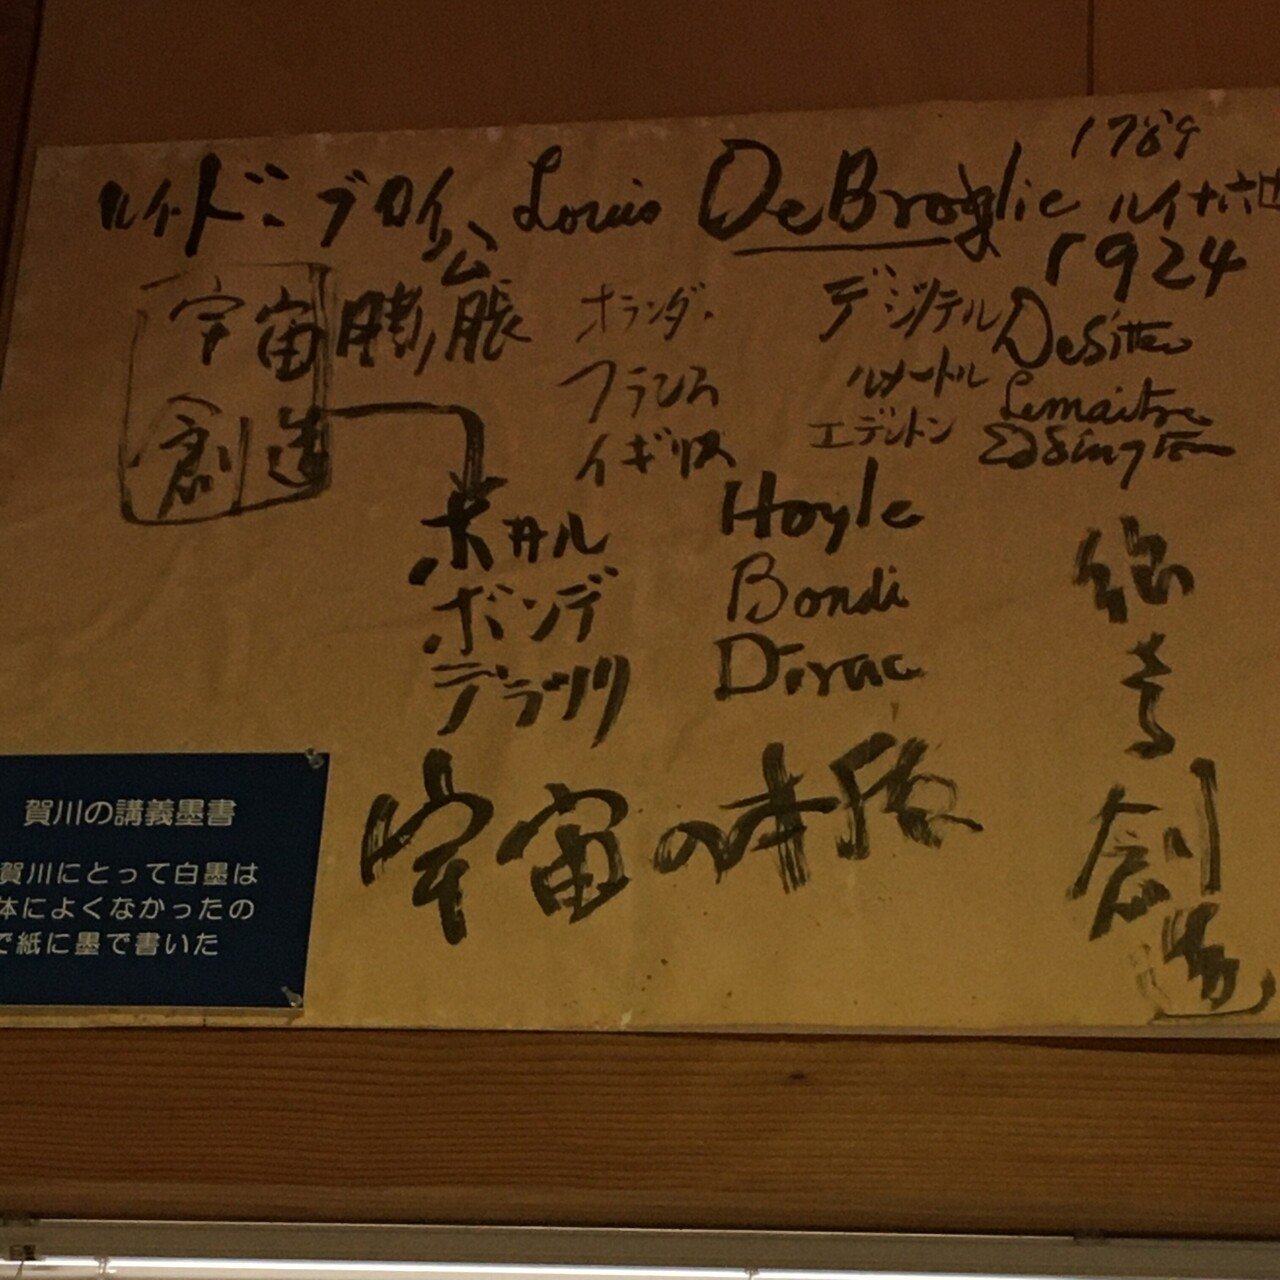 ルイ・ド・ブロイ公 Louis DeBroglie 1789
ルイ十六世
1924
宇宙膨脹 オランダ. デジッテル DeSitter
フランス ルメートル Lemaitre
創造 イギリス エデントン Eddington
ホイル Hoyle
ボンデ Bondi
デラック Dirac
宇宙の
創造
賀川の講義墨書
賀川にとって白墨は
体によくなかったの
で紙に墨で書いた